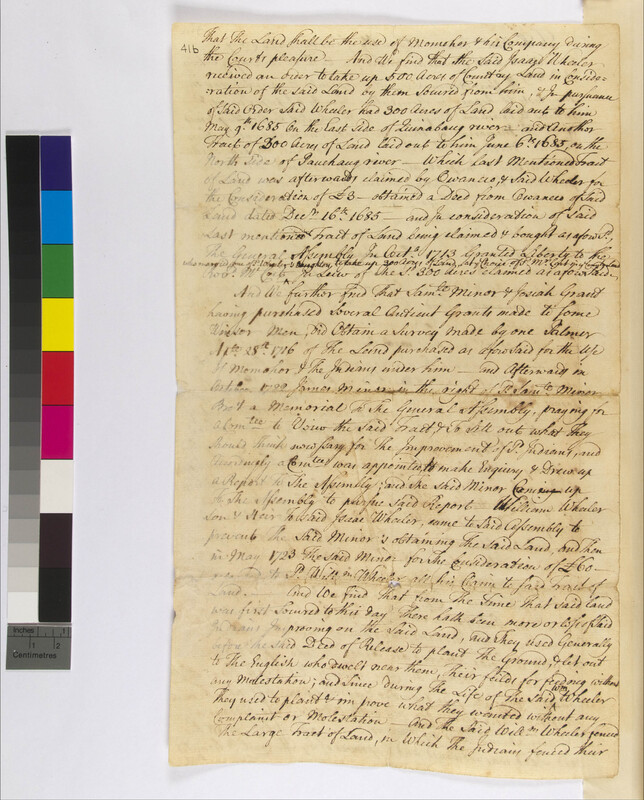 416
That The Land shall be the use of Momohor & his Company during
the Courts pleasure — And We find that the Said Isaac Wheeler
received an order to take up 500 Acres of Country Land in Conside-
ration of the said Land by them Soured from him, & In pursuance
of Said Order Said Wheeler had 300 Acres of Land laid out to him
May 9th 1685 On the East Side of Quinabaug river — and Another
Tract of 200 Acres of Land laid out to him June 6th 1685, on the
North Side of Pauchaug river — Which last Mentioned Tract
of Land was afterwards claimed by Owaneco, & Said Wheeler for
the Consideration of £3 — obtained a Deed from Owaneco of Said
Land dated Decr 16th 1685 — and In consideration of Said
Last mentioned Tract of Land being claimed & bought as aforesd,
The General Assembly In Octr 1713 Granted Liberty to the
who married one of Wheelers Daughters to take up 300 Acres of Land
In Lieu of the sd 300 Acres claimed as aforsaid
And We further find that Samll Minor & Josiah Grant
having purchased Several Antient Grants made to Some
Windsor Men, did Obtain a Survey made by one Palmer
28th 1716 of the Land purchased as aforSaid for the Use
of Momohor & The Indians under him — and Afterwards in
1722 James Minor in the right of sd Samll Minor
Bro't a Memorial to The General Assembly, praying for
a Comtee to View the said Tract & to Sett out what They
Should think nessary for The Improvement of sd Indians, and
Accordingly a Comtee was appointed to make Enquiry & Draw up
a Report to The Assembly; and the Said Minor Coming up
to The Assembly to pursue Said Report William Wheeler
Son & Heir to said Isaac Wheeler, came to Said Assembly to
prevent the Said Minor's obtaining The Said Land, and Then
in May 1723 The Said Minor for The Consideration of £60 —
to sd Willm Wheeler all his Claim to said Tract of
Land. — And We find that from the Time that said land
were first Soured to this day There hath been more or less of said
Indians Improving on the Said Land, and They used Generally
before the Said Deed of Release to plant the Ground, & let out
to The English who dwelt near them, Their feilds for feeding without
any Molestation; and Since during the Life of The Said Wm Wheeler
They used to plant & improve what they wanted without any
Complaint or Molestation — And The Said Willm Wheeler fenced
The Large Tract of Land, in Which The Indians fenced their